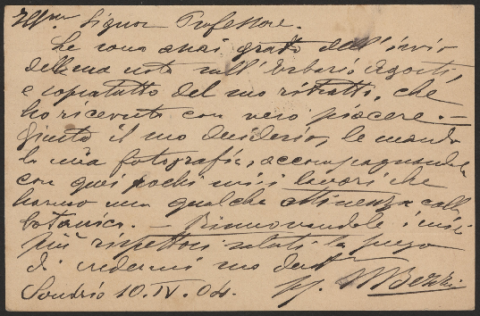 Ill.mo Signor Professore.
Le sono assai grato dell'invio
della sua nota sull'Erbario Agosti,
e sopratutto del suo ritratto, che
ho ricevuto con vero piacere. —
Giusto il suo desiderio, le mando
la mia fotografia, accompagnandola
con quei pochi miei lavori che
hanno una qualche attinenza colla
botanica. — Rinnovandole i miei
più rispettosi saluti la prego
di credermi suo dev.
Sondrio 10.IV.04. M Bezzi